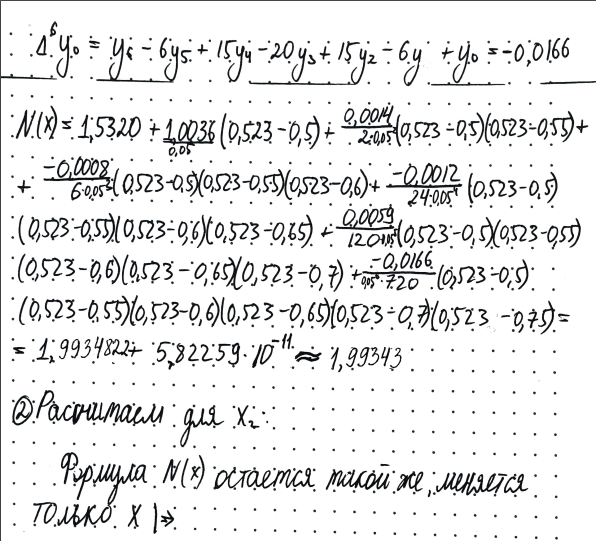 Δ⁶y₀ = y₆ - 6y₅ + 15y₄ - 20y₃ + 15y₂ - 6y + y₀ = -0,0166
N(x) = 1,5320 + 1,0036/0,05 (0,523-0,5) + 0,0014/2·0,05² (0,523-0,5)(0,523-0,55) +
+ -0,0008/6·0,05³ (0,523-0,5)(0,523-0,55)(0,523-0,6) + -0,0012/24·0,05⁴ (0,523-0,5)
(0,523-0,55)(0,523-0,6)(0,523-0,65) + 0,0059/120·0,05⁵ (0,523-0,5)(0,523-0,55)
(0,523-0,6)(0,523-0,65)(0,523-0,7) + -0,0166/0,05⁶·720 (0,523-0,5)
(0,523-0,55)(0,523-0,6)(0,523-0,65)(0,523-0,7)(0,523-0,75) =
= 1,9934822 + 5,82259·10⁻¹¹ ≈ 1,99343
② Расчитаем для x₂:
Формула N(x) остается такой же, меняется
только x |⇒